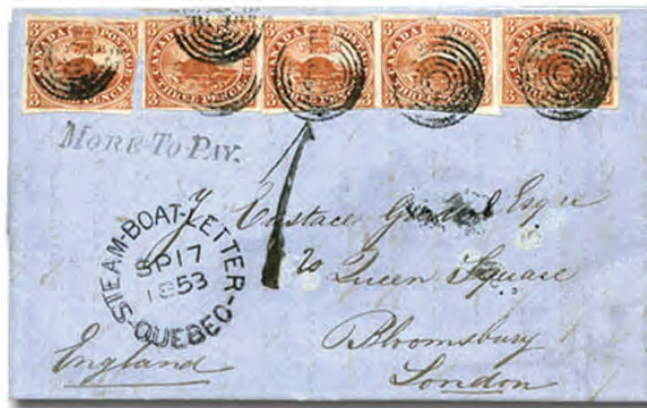 3 CANADA POSTAGE 3
3 THREE PENCE 3
MORE TO PAY.
STEAM-BOAT-LETTER
SP 17
1853
-QUEBEC-
J Eustace Esqre
20 Queen Square
Bloomsbury
London
England